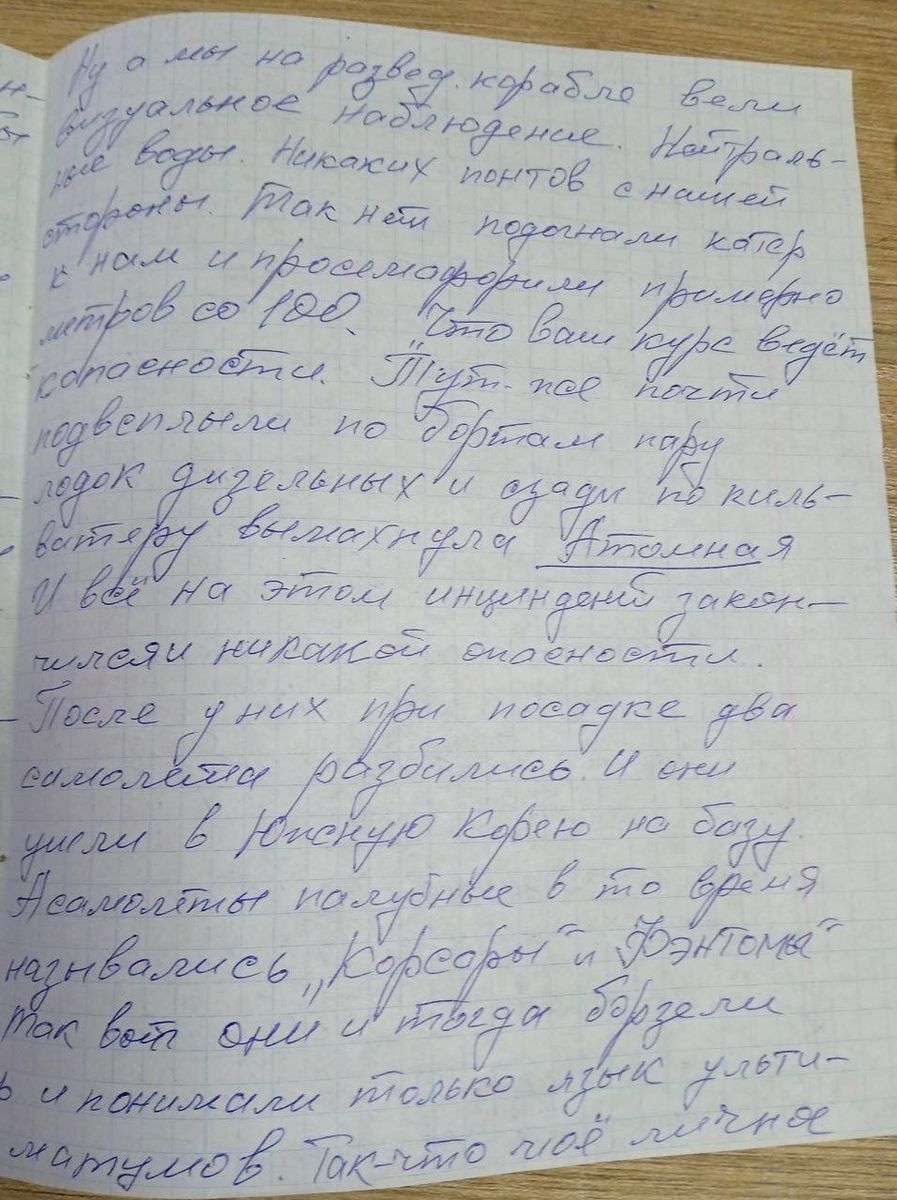 Ну а мы на развед. корабле вели
визуальное наблюдение. Нейтраль-
ные воды. Никаких понтов с нашей
стороны. Так нет подогнали катер
к нам и просемафорили примерно
метров со 100. Что ваш курс ведёт
копасности. "Тут-же почти
подвсплыли по бортам пару
лодок дизельных и сзади по киль-
ватеру вымахнула Атомная
И всё на этом инциндент закон-
чился и никакой опасности.
После у них при посадке два
самолёта разбились. И они
ушли в Южную Корею на базу.
А самолёты палубные в то время
назывались "Корсары" и "Фэнтомы"
Так вот они и тогда борзели
и понимали только язык ульти-
матумов. Так-что моё личное